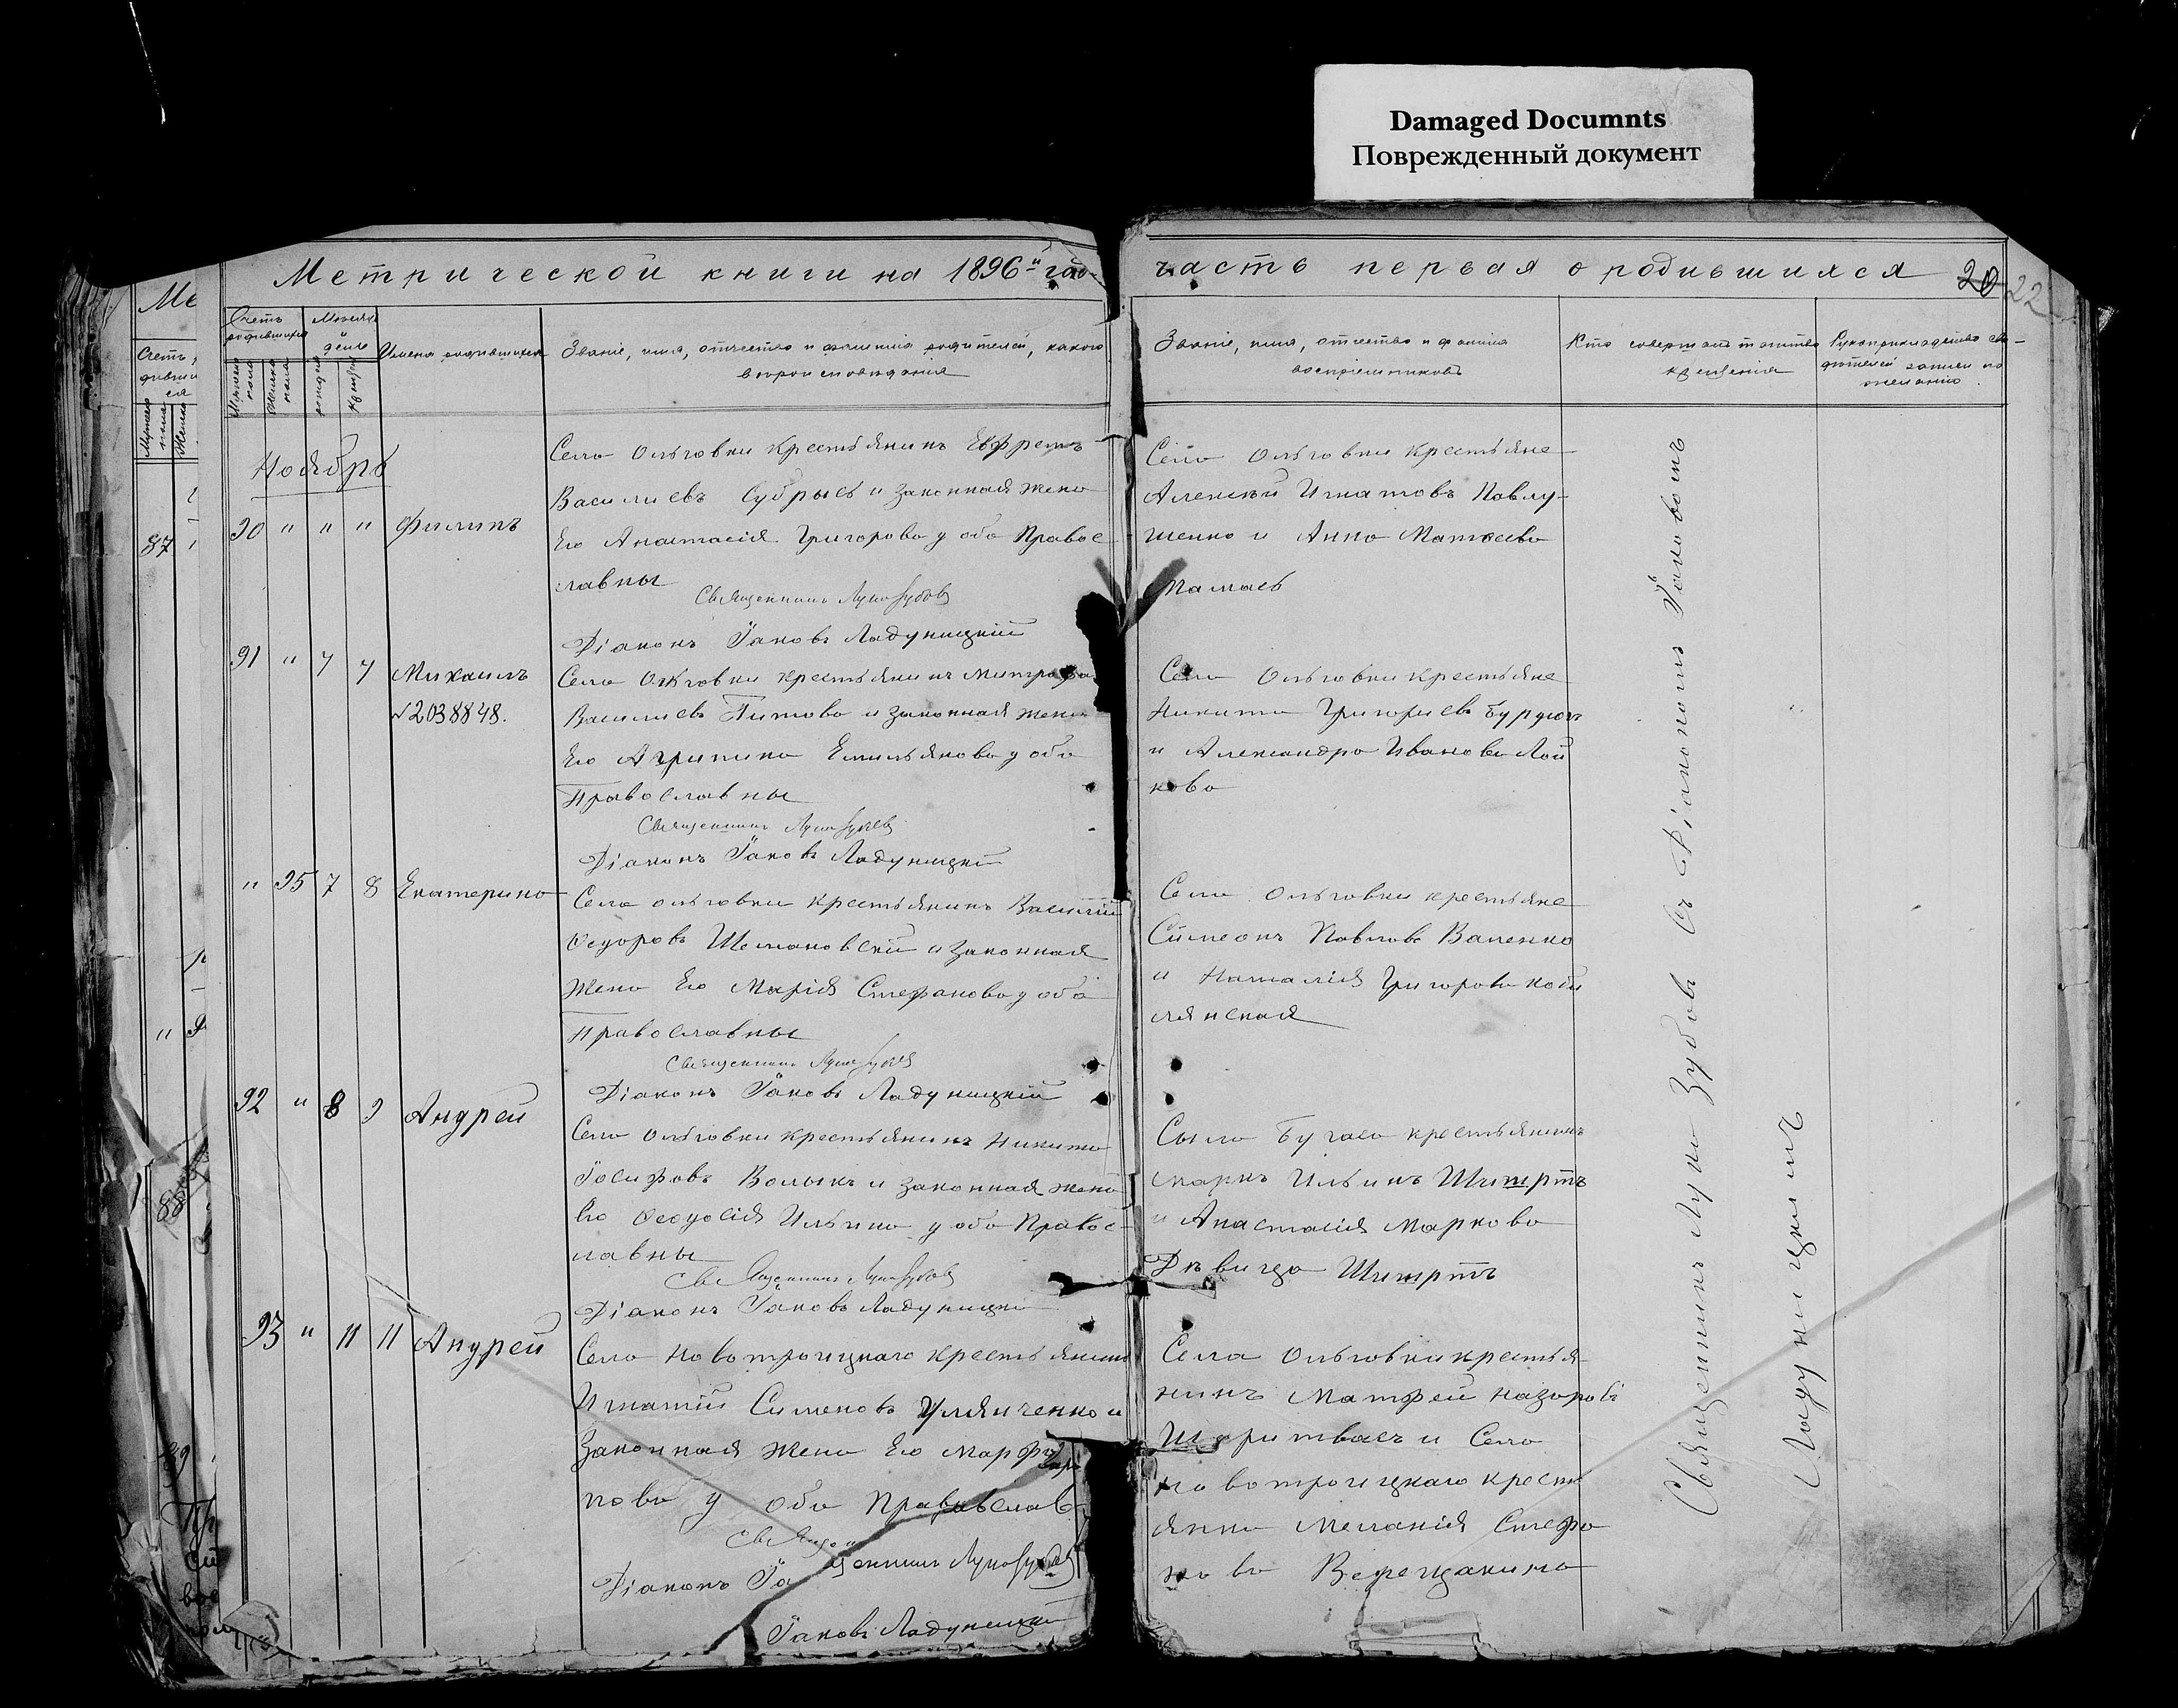 Damaged Documnts
Поврежденный документ
Метрической книги на 1896й год
часть первая о родившихся 20 22
Ме
Счетъ
родившихся
Мѣсяцъ
и
день
Мужска
пола
Женска
пола
рожденія
крещенія
Имена родившихся
Званіе, имя, отчество и фамилія родителей, какого
вѣроисповѣданія
Званіе, имя, отчество и фамилія
воспріемниковъ
Кто совершалъ таинство
крещенія
Рукоприкладство сви-
дѣтелей записи по
желанію.
87
" 9
88
89
Ноябрь
90 " " " Филипъ
Села Ольговки крестьянинъ Ефремъ
Василиевъ Субрысь и законная жена
Его Анастасія Григорова у оба Правос
лавны
Священникъ Лука Зубовъ
Діаконъ Іаковъ Ладуницкій
Села Ольговки крестьяне
Алексѣй Игнатовъ Павлу-
щенко и Анна Матѳеева
91 " 7 7 Михаилъ
№2038848.
Села Ольговки крестьянинъ Митрофа
Василиевъ Титова и законная жена
Его Агрипина Емильянова у оба
Православны
Священникъ Лука Зубовъ
Діаконъ Іаковъ Ладуницкій
Села Ольговки крестьяне
Никита Григориевъ Бурдюгъ
и Александра Иванова Лой
кова
" 95 7 8 Екатерина
Села Ольговки крестьянинъ Василій
Ѳедоровъ Шемановскій и законная
жена Его Марія Стефанова у оба
Православны
Священникъ Лука Зубовъ
Діаконъ Іаковъ Ладуницкій
Села Ольговки крестьяне
Симеонъ Павловъ Ваненко
и Наталія Григорова Коби
лянская
92 " 8 9 Андрей
Села Ольговки крестьянинъ Никита
Іосифовъ Волыкъ и законная жена
Его Ѳеодосія Ильина у оба Правос-
лавны
Священникъ Лука Зубовъ
Діаконъ Іаковъ Ладуницкій
Сыла Бугаса крестьянинъ
Маркъ Ильинъ Шишртъ
и Анастасія Маркова
Дѣвица Шишртъ
93 " 11 11 Андрей
Села Новотроицкаго крестьянинъ
Игнатій Сименовъ Улянченко и
Законная жена Его Марфа
пова у оба Православ
Священ
щенникъ Лука Зубовъ
Діаконъ Іа
Іаковъ Ладуницкій
Села Ольговки крестья-
нинъ Матфей Назаровъ
Шаритвасъ и Села
Новотроицкаго кресть
янка Меланія Стефа
нова Верещакина
Священникъ Лука Зубовъ съ Діакономъ Іаковомъ
Ладуницкимъ